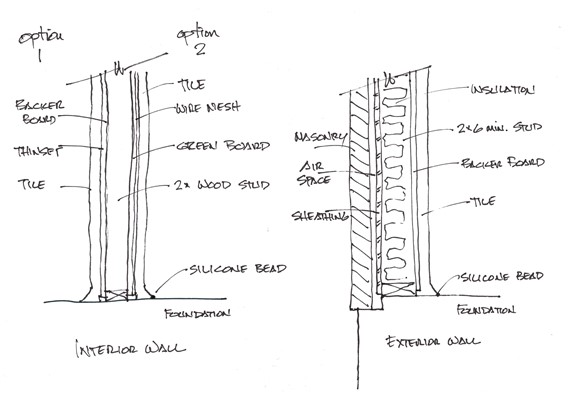 Option
1
Option
2
TILE
WIRE MESH
BACKER
BOARD
GREEN BOARD
THINSET
TILE
2x WOOD STUD
SILICONE BEAD
FOUNDATION
INTERIOR WALL
INSULATION
2x6 MIN. STUD
MASONRY
BACKER BOARD
AIR
SPACE
TILE
SHEATHING
SILICONE BEAD
FOUNDATION
EXTERIOR WALL